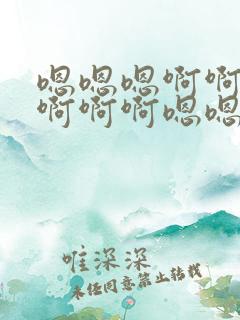 嗯嗯嗯啊啊
啊啊啊嗯嗯
唯深深
未经同意禁止转载